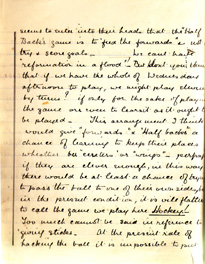 seems to enter into their heads that the Half
Backs' game is to feed the forwards & not
try & score goals. We cant have
reformation in a flood. But dont you think
that if we have the whole of Wednesday
afternoon to play, we might play eleven
by turns? if only for the sake of play
the game as ever to learnt as it ought to
be played — This arrangement I think
would give "forwards" & "Half backs" a
chance of learning to keep their places
whether be "centers" or "wings" — perhaps
if they are clever enough, in this way
there would be at least a chance of trying
to pass the ball to one of their own side, for
in the present condition, it is vile flattery
to call the game we play here Hockey.
Too much cannot be said in reference to
giving sticks. At the present rate of
hacking the ball it is impossible to put